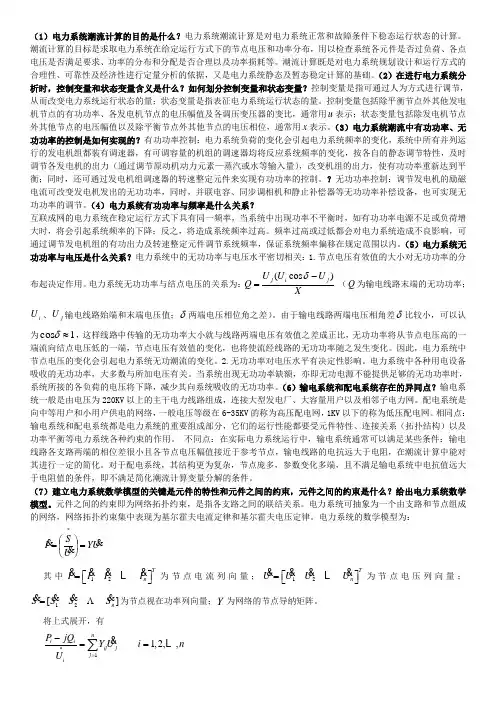 （1）电力系统潮流计算的目的是什么？电力系统潮流计算是对电力系统正常和故障条件下稳态运行状态的计算。
潮流计算的目标是求取电力系统在给定运行方式下的节点电压和功率分布，用以检查系统各元件是否过负荷、各点
电压是否满足要求、功率的分布和分配是否合理以及功率损耗等。潮流计算既是对电力系统规划设计和运行方式的
合理性、可靠性及经济性进行定量分析的依据，又是电力系统静态及暂态稳定计算的基础。（2）在进行电力系统分
析时，控制变量和状态变量含义是什么？如何划分控制变量和状态变量？控制变量是指可通过人为方式进行调节，
从而改变电力系统运行状态的量；状态变量是指表征电力系统运行状态的量。控制变量包括除平衡节点外其他发电
机节点的有功功率、各发电机节点的电压幅值及各调压变压器的变比，通常用u表示；状态变量包括除发电机节点
外其他节点的电压幅值以及除平衡节点外其他节点的电压相位，通常用x表示。（3）电力系统潮流中有功功率、无
功功率的控制是如何实现的？有功功率控制：电力系统负荷的变化会引起电力系统频率的变化，系统中所有并列运
行的发电机组都装有调速器，有可调容量的机组的调速器均将反应系统频率的变化，按各自的静态调节特性，及时
调节各发电机的出力（通过调节原动机动力元素—蒸汽或水等输入量），改变机组的出力，使有功功率重新达到平
衡；同时，还可通过发电机组调速器的转速整定元件来实现有功功率的控制。？无功功率控制：调节发电机的励磁
电流可改变发电机发出的无功功率，同时，并联电容、同步调相机和静止补偿器等无功功率补偿设备，也可实现无
功功率的调节。（4）电力系统有功功率与频率是什么关系？
互联成网的电力系统在稳定运行方式下具有同一频率，当系统中出现功率不平衡时，如有功功率电源不足或负荷增
大时，将会引起系统频率的下降；反之，将造成系统频率过高。频率过高或过低都会对电力系统造成不良影响，可
通过调节发电机组的有功出力及转速整定元件调节系统频率，保证系统频率偏移在规定范围以内。（5）电力系统无
功功率与电压是什么关系？电力系统中的无功功率与电压水平密切相关：1.节点电压有效值的大小对无功功率的分
布起决定作用。电力系统无功功率与结点电压的关系为：Q = U_j(U_i cos δ − U_j) / X （Q为输电线路末端的无功功率；
U_i、U_j 输电线路始端和末端电压值；δ两端电压相位角之差）。由于输电线路两端电压相角差δ比较小，可以认
为cos δ ≈ 1，这样线路中传输的无功功率大小就与线路两端电压有效值之差成正比，无功功率将从节点电压高的一
端流向结点电压低的一端，节点电压有效值的变化，也将使流经线路的无功功率随之发生变化。因此，电力系统中
节点电压的变化会引起电力系统无功潮流的变化。2.无功功率对电压水平有决定性影响。电力系统中各种用电设备
吸收的无功功率，大多数与所加电压有关。当系统出现无功功率缺额，亦即无功电源不能提供足够的无功功率时，
系统所接的各负荷的电压将下降，减少其向系统吸收的无功功率。（6）输电系统和配电系统存在的异同点？输电系
统一般是由电压为220KV以上的主干电力线路组成，连接大型发电厂、大容量用户以及相邻子电力网。配电系统是
向中等用户和小用户供电的网络，一般电压等级在6-35KV的称为高压配电网，1KV以下的称为低压配电网。相同点：
输电系统和配电系统都是电力系统的重要组成部分，它们的运行性能都要受元件特性、连接关系（拓扑结构）以及
功率平衡等电力系统各种约束的作用。 不同点：在实际电力系统运行中，输电系统通常可以满足某些条件：输电
线路各支路两端的相位差很小且各节点电压幅值接近于参考节点，输电线路的电抗远大于电阻，在潮流计算中能对
其进行一定的简化。对于配电系统，其结构更为复杂，节点庞多，参数变化多端，且不满足输电系统中电抗值远大
于电阻值的条件，即不满足简化潮流计算变量分解的条件。
（7）建立电力系统数学模型的关键是元件的特性和元件之间的约束，元件之间的约束是什么？给出电力系统数学
模型。元件之间的约束即为网络拓扑约束，是指各支路之间的联结关系。电力系统可抽象为一个由支路和节点组成
的网络，网络拓扑约束集中表现为基尔霍夫电流定律和基尔霍夫电压定律。电力系统的数学模型为：
为节点电流列向量；
为节点电压列向量；
为节点视在功率列向量；Y为网络的节点导纳矩阵。
将上式展开，有
i = 1,2,L ,n